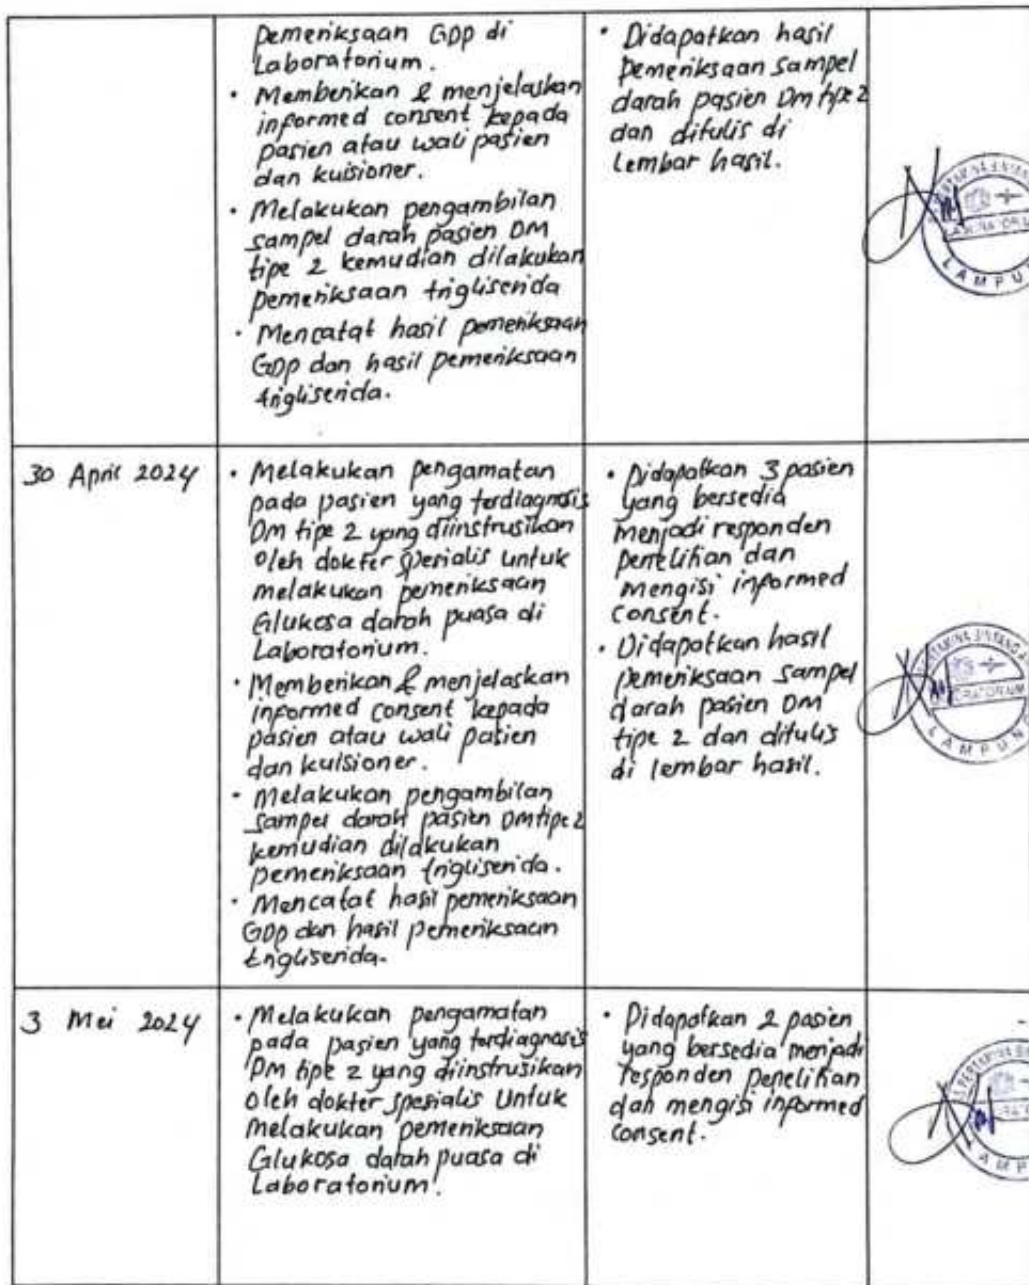 pemeriksaan GDP di
Laboratorium.
• Memberikan & menjelaskan
informed consent kepada
pasien atau wali pasien
dan kuisioner.
• Melakukan pengambilan
sampel darah pasien DM
tipe 2 kemudian dilakukan
pemeriksaan trigliserida
• Mencatat hasil pemeriksaan
GDP dan hasil pemeriksaan
trigliserida.
• Didapatkan hasil
pemeriksaan sampel
darah pasien Dm tipe 2
dan ditulis di
Lembar hasil.
LAMPU
30 April 2024
• Melakukan pengamatan
pada pasien yang terdiagnosis
Dm tipe 2 yang diinstrusikan
oleh dokter spesialis untuk
melakukan pemeriksaan
Glukosa darah puasa di
Laboratorium.
• Memberikan & menjelaskan
informed consent kepada
pasien atau wali pasien
dan kuisioner.
• Melakukan pengambilan
sampel darah pasien Dm tipe 2
kemudian dilakukan
pemeriksaan trigliserida.
• Mencatat hasil pemeriksaan
GDP dan hasil pemeriksaan
trigliserida.
• Didapatkan 3 pasien
yang bersedia
menjadi responden
penelitian dan
mengisi informed
consent.
• Didapatkan hasil
pemeriksaan sampel
darah pasien DM
tipe 2 dan ditulis
di lembar hasil.
LAMPUN
3 Mei 2024
• Melakukan pengamatan
pada pasien yang terdiagnosis
Dm tipe 2 yang diinstrusikan
oleh dokter spesialis Untuk
melakukan pemeriksaan
Glukosa darah puasa di
Laboratorium.
• Didapatkan 2 pasien
yang bersedia menjadi
responden penelitian
dan mengisi informed
consent.
AMP